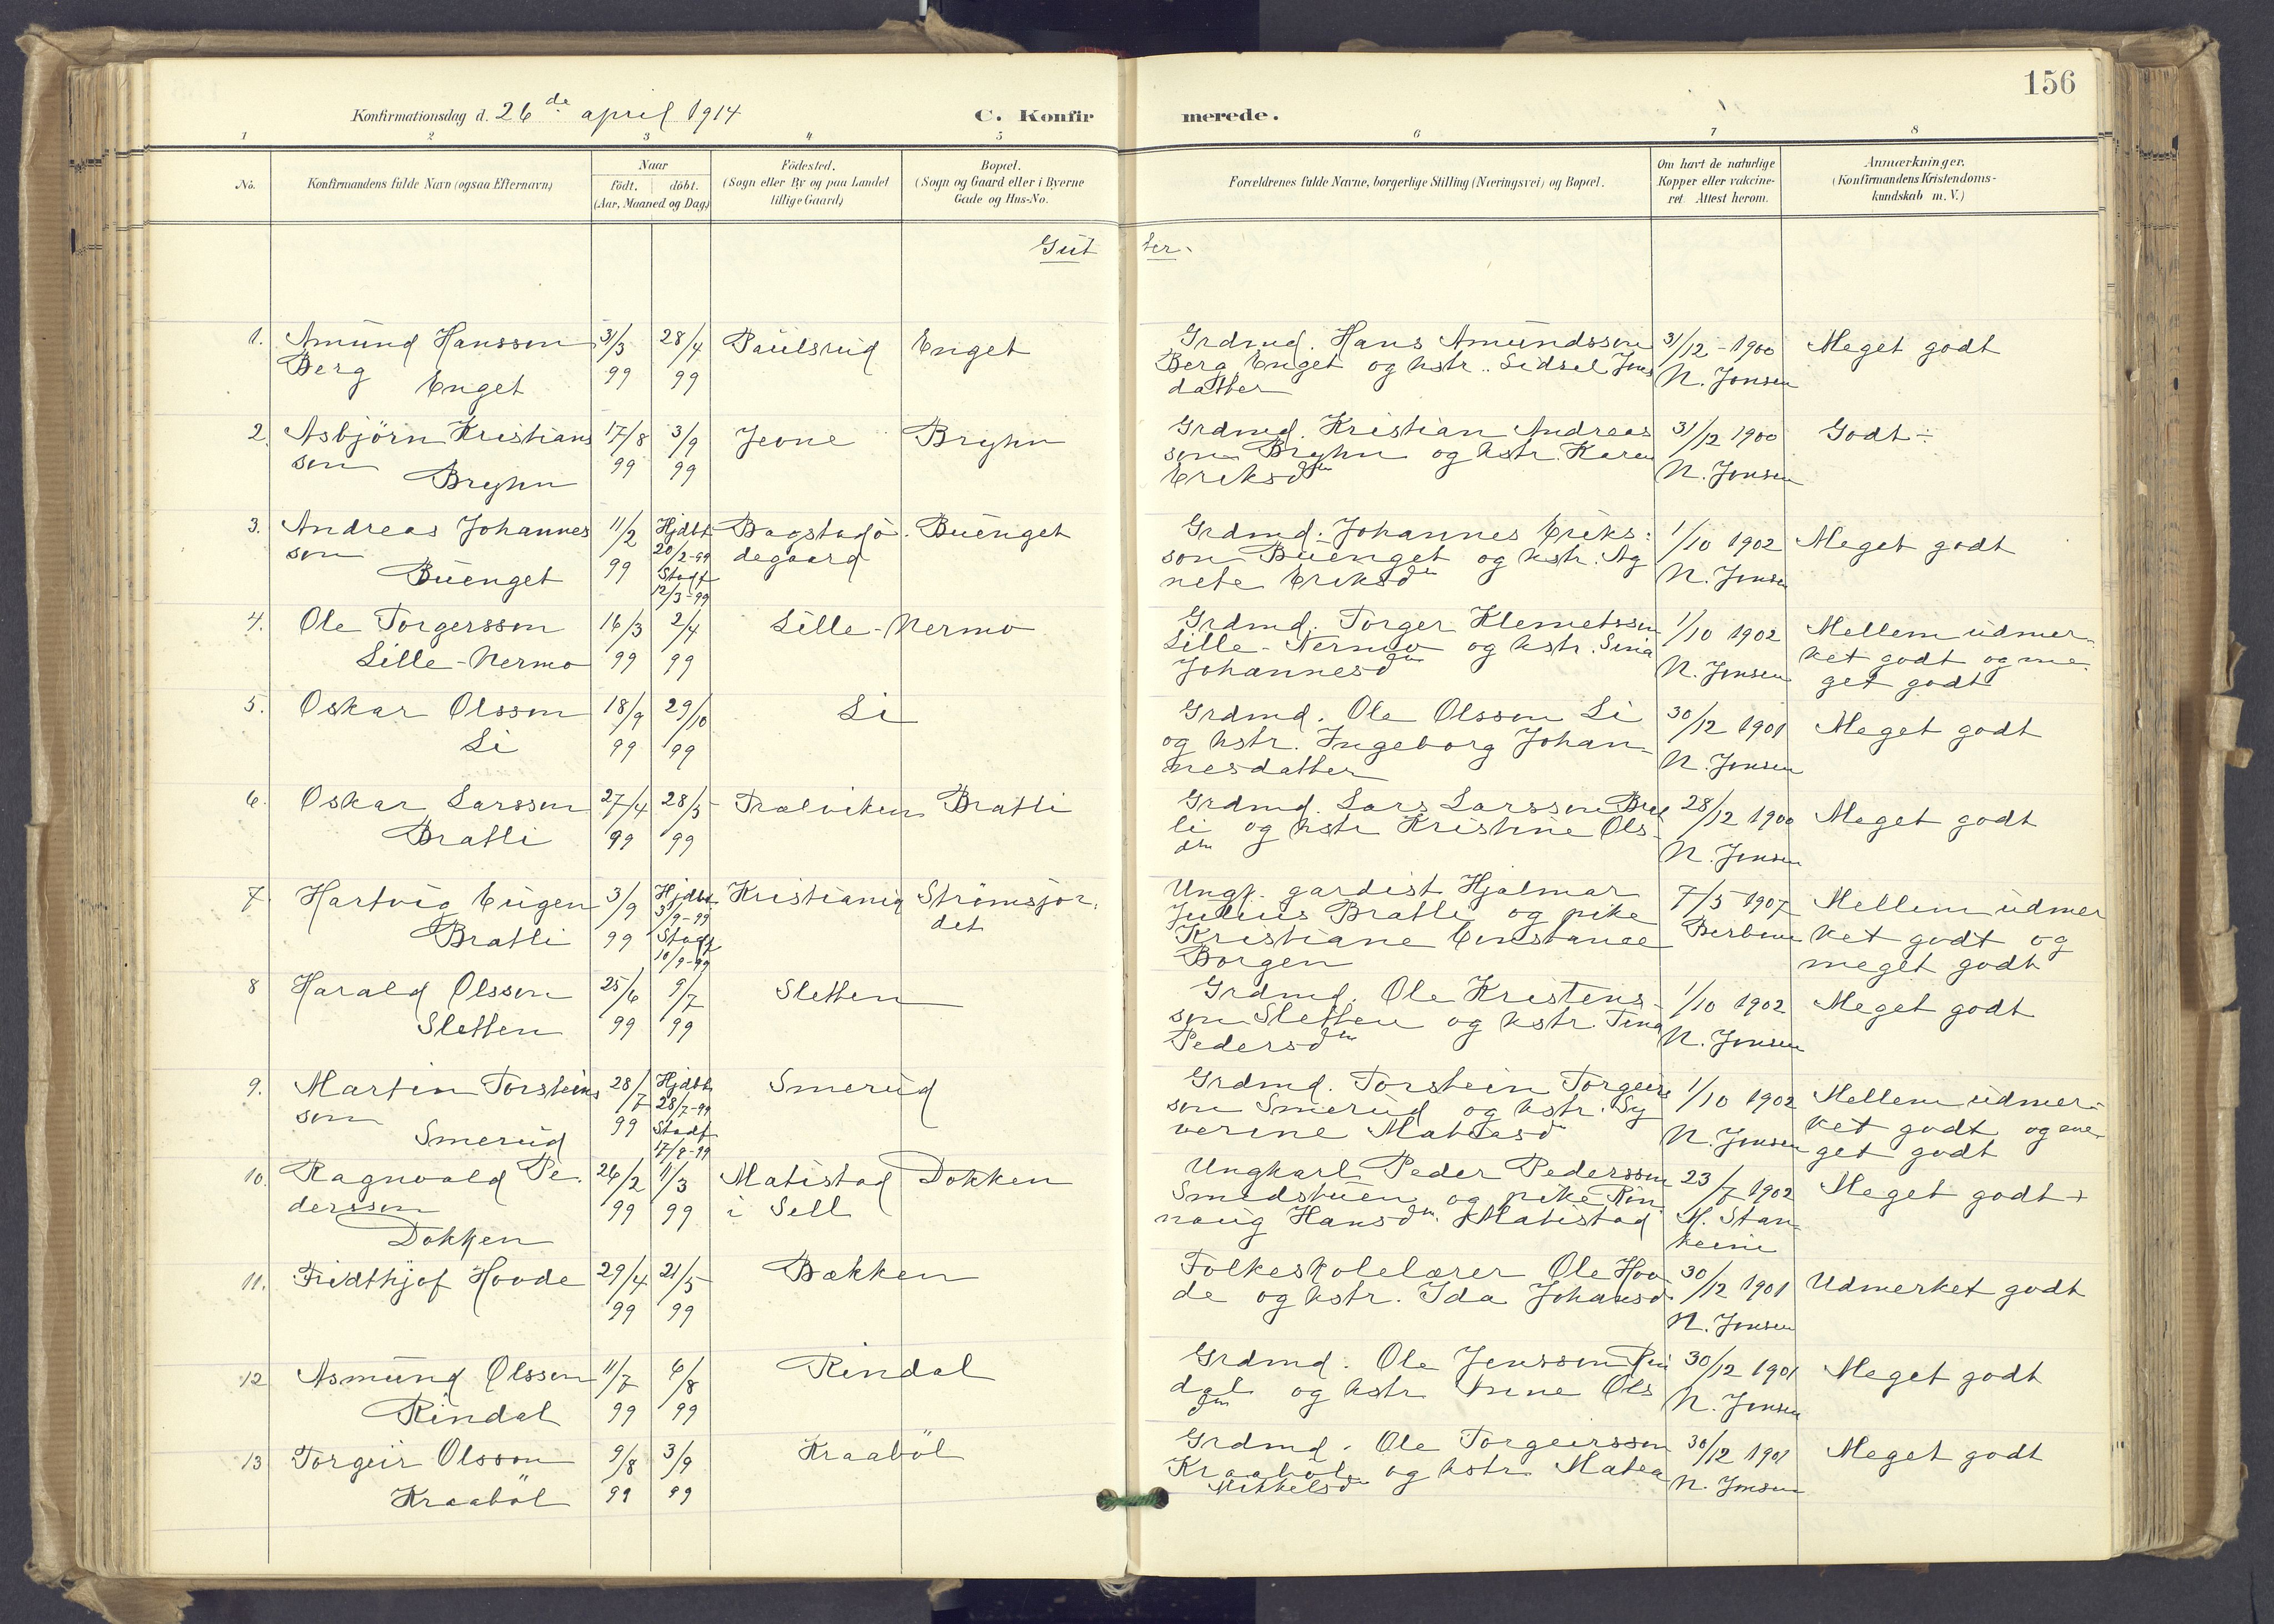 156
Konfirmationsdag d. 26de april 1914
C. Konfirmerede.
1 2 3 4 5 6 7 8
No.
Konfirmandens fulde Navn (ogsaa Efternavn)
Naar
födt. döbt.
(Aar, Maaned og Dag)
Födested.
(Sogn eller By og paa Landet
tillige Gaard)
Bopæl.
(Sogn og Gaard eller i Byerne
Gade og Hus-No.
Forældrenes fulde Navne, borgerlige Stilling (Næringsvei) og Bopæl.
Om havt de naturlige
Kopper eller vakcine-
ret Attest herom.
Anmærkninger.
(Konfirmandens Kristendoms-
kundskab m. V.)
Gutter.
1. Amund Hansson 31/3 28/4 Paulsrud Enget Grdmd. Hans Amundsson 31/12-1900 Meget godt
Berg Enget 99 99 Berg Enget og hstr. Sidsel Jens N. Jonsen
datter
2. Asbjörn Kristians 17/8 3/9 Jevne Bryhn Grdmd. Kristian Andreas 31/12 1900 Godt ÷
son Bryhn 99 99 son Bryhn og hstr. Karen N. Jonsen
Eriksdtr
3. Andreas Johannes 11/2 Hjdbt Bagstadö- Buenget Grdmd. Johannes Eriks- 1/10 1902 Meget godt
son 99 20/2-99 degaard son Buenget og hstr. Ag
Buenget Stadf 12/3-99 nete Eriksdtr N. Jonsen
4. Ole Torgersson 16/3 2/4 Lille-Nermo Grdmd. Torger Klemetsson 1/10 1902 Mellem udmer-
Lille-Nermo 99 99 Lille-Nermo og hstr. Sina ket godt og me-
Johannesdtr N. Jonsen get godt
5. Oskar Olsson 18/9 29/10 Li Grdmd. Ole Olsson Li 30/12 1901 Meget godt
Li 99 99 og hstr. Ingeborg Johan-
nesdatter N. Jonsen
6. Oskar Larsson 27/4 28/5 Trælviken Bratli Grdmd. Lars Larsson Brat 28/12 1900 Meget godt
Bratli 99 99 li og hstr Kristine Ols-
dtr N. Jonsen
7. Hartvig Eugen 3/9 Hjdbt Kristiania Strömsjor- Ungk. gardist Hjalmar 7/5-1907 Mellem udmer
Bratli 99 3/9-99 det Julius Bratli og pike ket godt og
Stadf 10/9-99 Kristiane Constance meget godt
Borgen
8 Harald Olsson 25/6 9/7 Sletten Grdmd. Ole Kristens- 1/10 1902 Meget godt
Sletten 99 99 son Sletten og hstr. Tina
Pedersdtr N. Jonsen
9. Martin Torsteins 28/7 Hjdbt Smerud Grdmd. Torstein Torgeirs 1/10 1902 Mellem udmer-
son 99 28/7-99 son Smerud og hstr. Sy ket godt og me-
Smerud Stadf 17/9-99 verine Mateasd N. Jonsen get godt
10. Ragnvald Pe- 26/2 11/3 Matistad Dokken Ungkarl Peder Pedersson 23/7 1902 Meget godt +
dersson 99 99 i Sell Smedstuen og pike Rön
Dokken naug Hansdtr. Matistad
11. Fridthjof Hovde 29/4 21/5 Bækken Folkeskolelærer Ole Hov 30/12 1901 Udmerket godt
99 99 de og hstr. Ida Johansd.
N. Jonsen
12 Asmund Olsson 11/7 6/8 Rindal Grdmd. Ole Jensson Rin 30/12 1901 Meget godt
Rindal 99 99 dal og hstr Anne Ols
dtr N. Jonsen
13 Torgeir Olsson 9/8 3/9 Kraaböl Grdmd. Ole Torgeirsson 30/12 1901 Meget godt
Kraaböl 99 99 Kraaböl og hstr Matea
Mikkelsdtr N. Jonsen